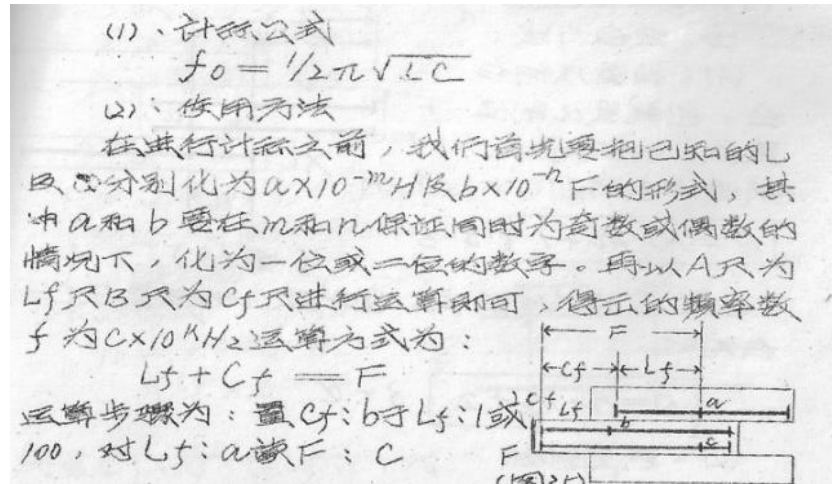 (1)、计祘公式
f0=1/2π√LC
(2)、使用方法
在进行计祘之前，我们首先要把已知的L
及C分别化为a×10⁻ᵐH及b×10⁻ⁿF的形式，其
中a和b要在m和n保证同时为奇数或偶数的
情况下，化为一位或二位的数字。再以A尺为
Lf尺B尺为Cf尺进行运算即可，得出的频率数
f为C×10ᴷHz运算方式为：
Lf+Cf=F
运算步骤为：置Cf:b于Lf:1或
100，对Lf:a读F:C
F
Cf
Lf
Cf
Lf
a
b
c
F
(图25)